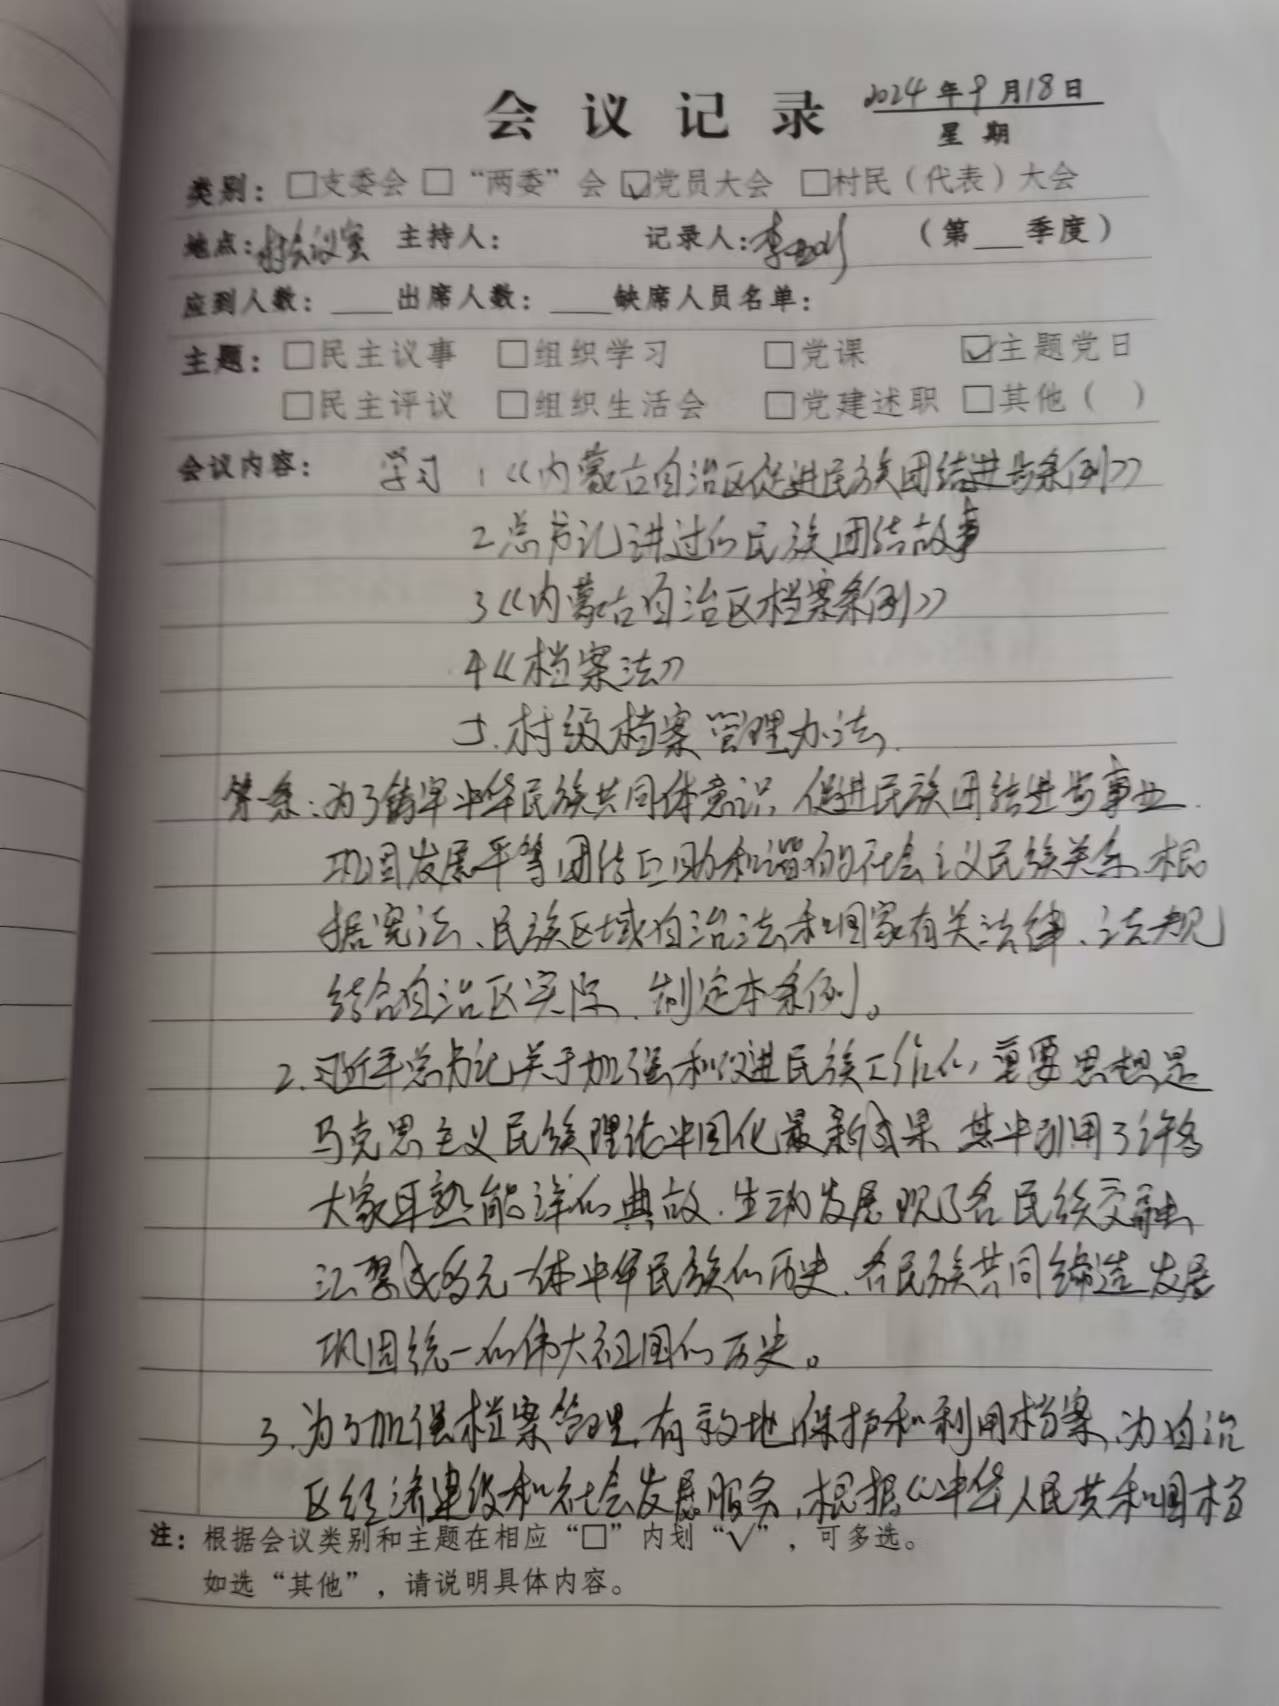 会议记录 2024年9月18日
星期
类别：□支委会 □“两委”会 ☑党员大会 □村民（代表）大会
地点：村会议室 主持人： 记录人：李 （第___季度）
应到人数：____出席人数：____缺席人员名单：
主题：□民主议事 □组织学习 □党课 ☑主题党日
□民主评议 □组织生活会 □党建述职 □其他（ ）
会议内容： 学习 1《内蒙古自治区促进民族团结进步条例》
2总书记讲过的民族团结故事
3《内蒙古自治区档案条例》
4《档案法》
5.村级档案管理办法.
第一条：为了铸牢中华民族共同体意识，促进民族团结进步事业.
巩固发展平等团结互助和谐的社会主义民族关系，根
据宪法、民族区域自治法和国家有关法律、法规
结合自治区实际，制定本条例。
2.习近平总书记关于加强和促进民族工作的重要思想是
马克思主义民族理论中国化最新成果，其中引用了许多
大家耳熟能详的典故.生动发展现了各民族交融
汇聚成多元一体中华民族的历史，各民族共同缔造、发展
巩固统一的伟大祖国的历史。
3.为了加强档案管理，有效地保护和利用档案，为自治
区经济建设和社会发展服务，根据《中华人民共和国档
注：根据会议类别和主题在相应“□”内划“√”，可多选。
如选“其他”，请说明具体内容。